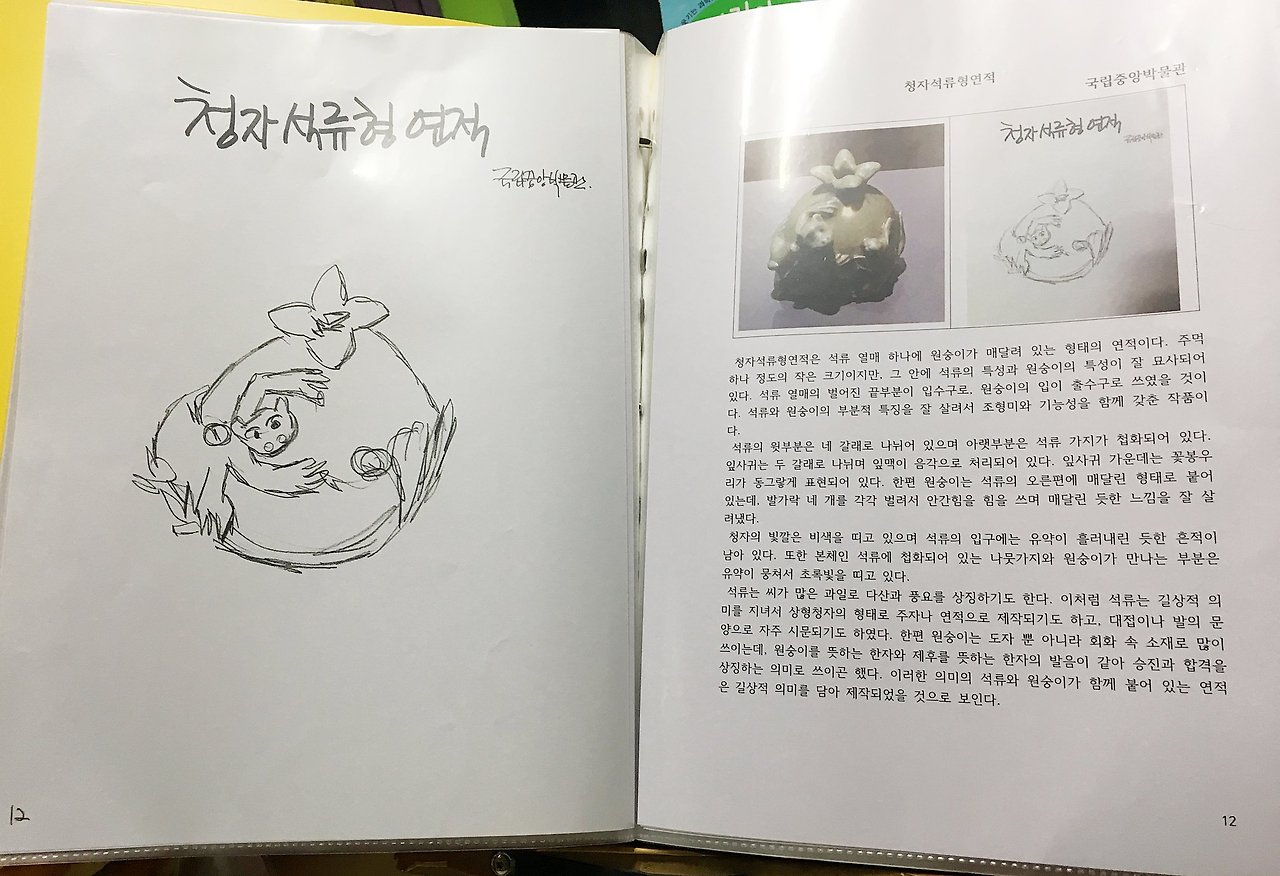 청자석류형 연적
국립중앙박물관.
12
청자석류형연적
국립중앙박물관
청자석류형 연적
국립중앙박물관
청자석류형연적은 석류 열매 하나에 원숭이가 매달려 있는 형태의 연적이다. 주먹
하나 정도의 작은 크기이지만, 그 안에 석류의 특성과 원숭이의 특성이 잘 묘사되어
있다. 석류 열매의 벌어진 끝부분이 입수구로, 원숭이의 입이 출수구로 쓰였을 것이
다. 석류와 원숭이의 부분적 특징을 잘 살려서 조형미와 기능성을 함께 갖춘 작품이
다.
석류의 윗부분은 네 갈래로 나뉘어 있으며 아랫부분은 석류 가지가 첩화되어 있다.
잎사귀는 두 갈래로 나뉘며 잎맥이 음각으로 처리되어 있다. 잎사귀 가운데는 꽃봉우
리가 동그랗게 표현되어 있다. 한편 원숭이는 석류의 오른편에 매달린 형태로 붙어
있는데, 발가락 네 개를 각각 벌려서 안간힘을 힘을 쓰며 매달린 듯한 느낌을 잘 살
려냈다.
청자의 빛깔은 비색을 띠고 있으며 석류의 입구에는 유약이 흘러내린 듯한 흔적이
남아 있다. 또한 본체인 석류에 첩화되어 있는 나뭇가지와 원숭이가 만나는 부분은
유약이 뭉쳐서 초록빛을 띠고 있다.
석류는 씨가 많은 과일로 다산과 풍요를 상징하기도 한다. 이처럼 석류는 길상적 의
미를 지녀서 상형청자의 형태로 주자나 연적으로 제작되기도 하고, 대접이나 발의 문
양으로 자주 시문되기도 하였다. 한편 원숭이는 도자 뿐 아니라 회화 속 소재로 많이
쓰이는데, 원숭이를 뜻하는 한자와 제후를 뜻하는 한자의 발음이 같아 승진과 합격을
상징하는 의미로 쓰이곤 했다. 이러한 의미의 석류와 원숭이가 함께 붙어 있는 연적
은 길상적 의미를 담아 제작되었을 것으로 보인다.
12